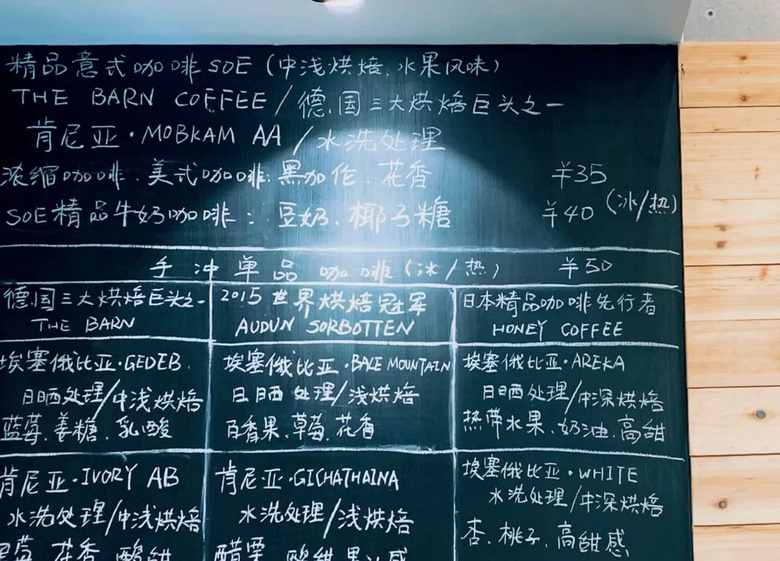 精品意式咖啡SOE(中浅烘焙、水果风味)
THE BARN COFFEE/德国三大烘焙巨头之一
肯尼亚·MOBKAM AA/水洗处理
浓缩咖啡、美式咖啡:黑加伦、花香 ¥35
SOE精品牛奶咖啡:豆奶、椰子糖 ¥40(冰/热)
手冲单品咖啡(冰/热) ¥50
德国三大烘焙巨头之一
THE BARN
2015世界烘焙冠军
AUDUN SORBOTTEN
日本精品咖啡先行者
HONEY COFFEE
埃塞俄比亚·GEDEB
日晒处理/中浅烘焙
蓝莓、姜糖、乳酸
埃塞俄比亚·BALE MOUNTAIN
日晒处理/浅烘焙
百香果、草莓、花香
埃塞俄比亚·AREKA
日晒处理/中深烘焙
热带水果、奶油、高甜
肯尼亚·IVORY AB
水洗处理/中浅烘焙
花香、酸甜
肯尼亚·GICHATHAINA
水洗处理/浅烘焙
醋栗、酸甜
埃塞俄比亚·WHITE
水洗处理/中深烘焙
杏、桃子、高甜感